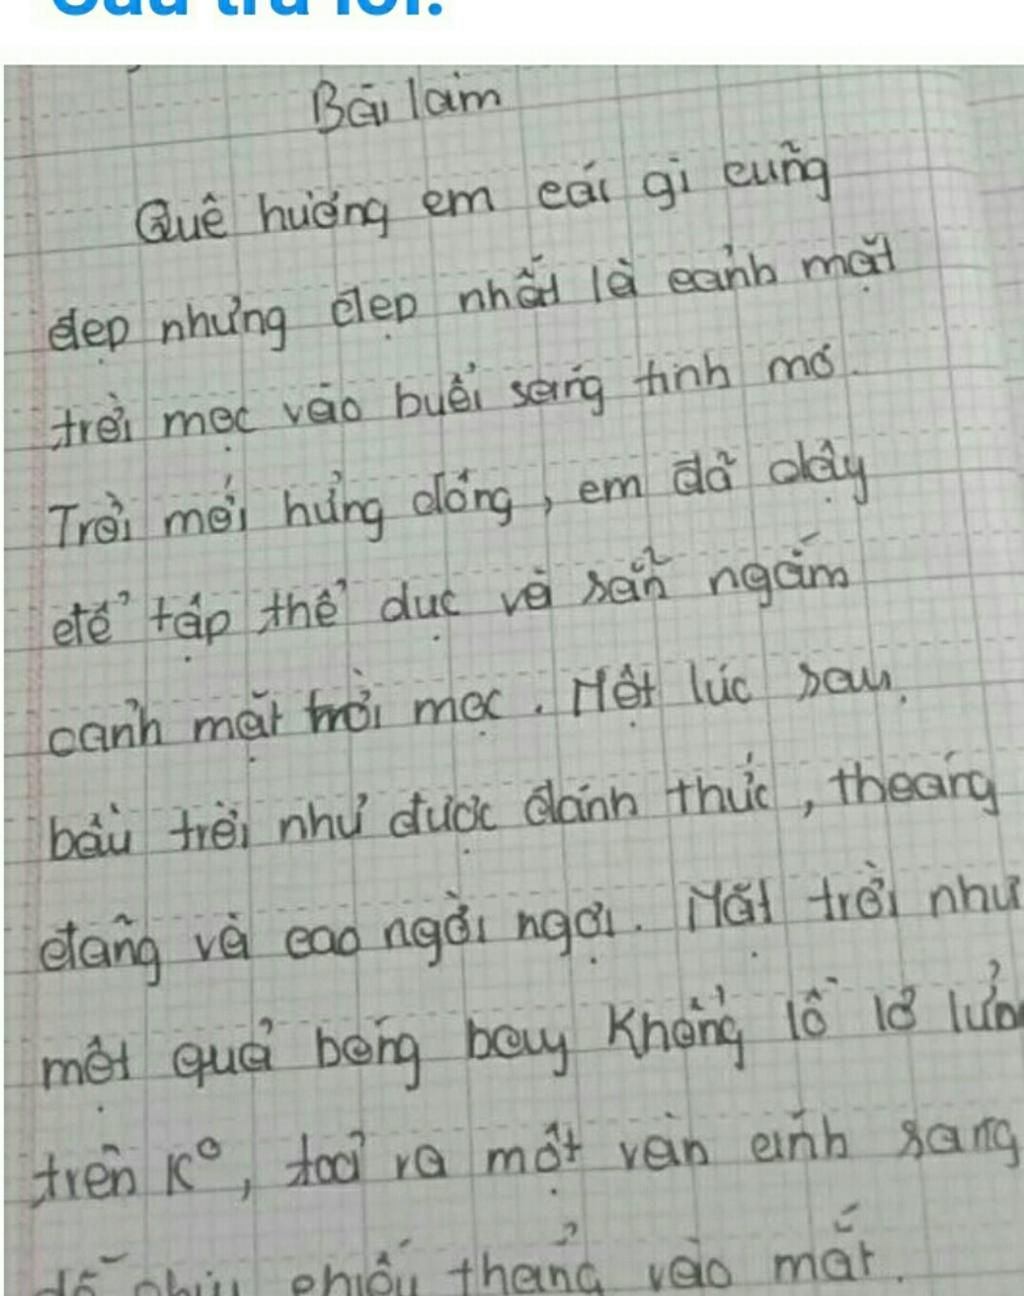 Câu trả lời:
Bài làm
Quê hương em cái gì cũng
đẹp nhưng đẹp nhất là cảnh mặt
trời mọc vào buổi sáng tinh mơ.
Trời mới hửng đông, em đã dậy
để tập thể dục và sẵn ngắm
cảnh mặt trời mọc. Một lúc sau,
bầu trời như được đánh thức, thoáng
đãng và cao ngời ngợi. Mặt trời như
một quả bóng bay khổng lồ lơ lửng
trên K°, toả ra một vàn ánh sáng
dễ chịu chiếu thẳng vào mắt.